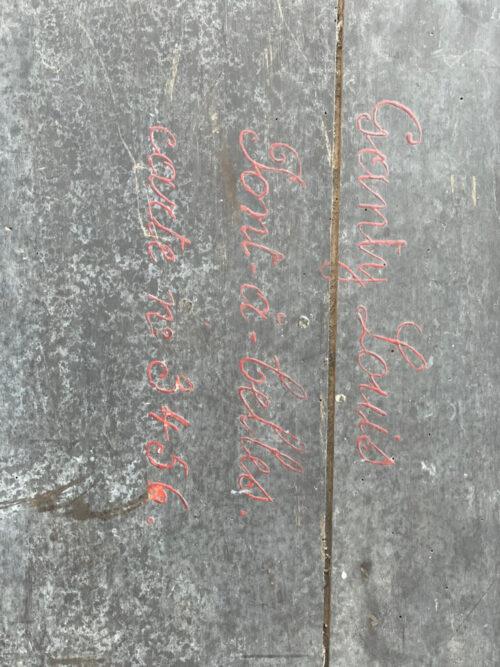 Genty Louis
Font-à-belles.
carte no 3456.